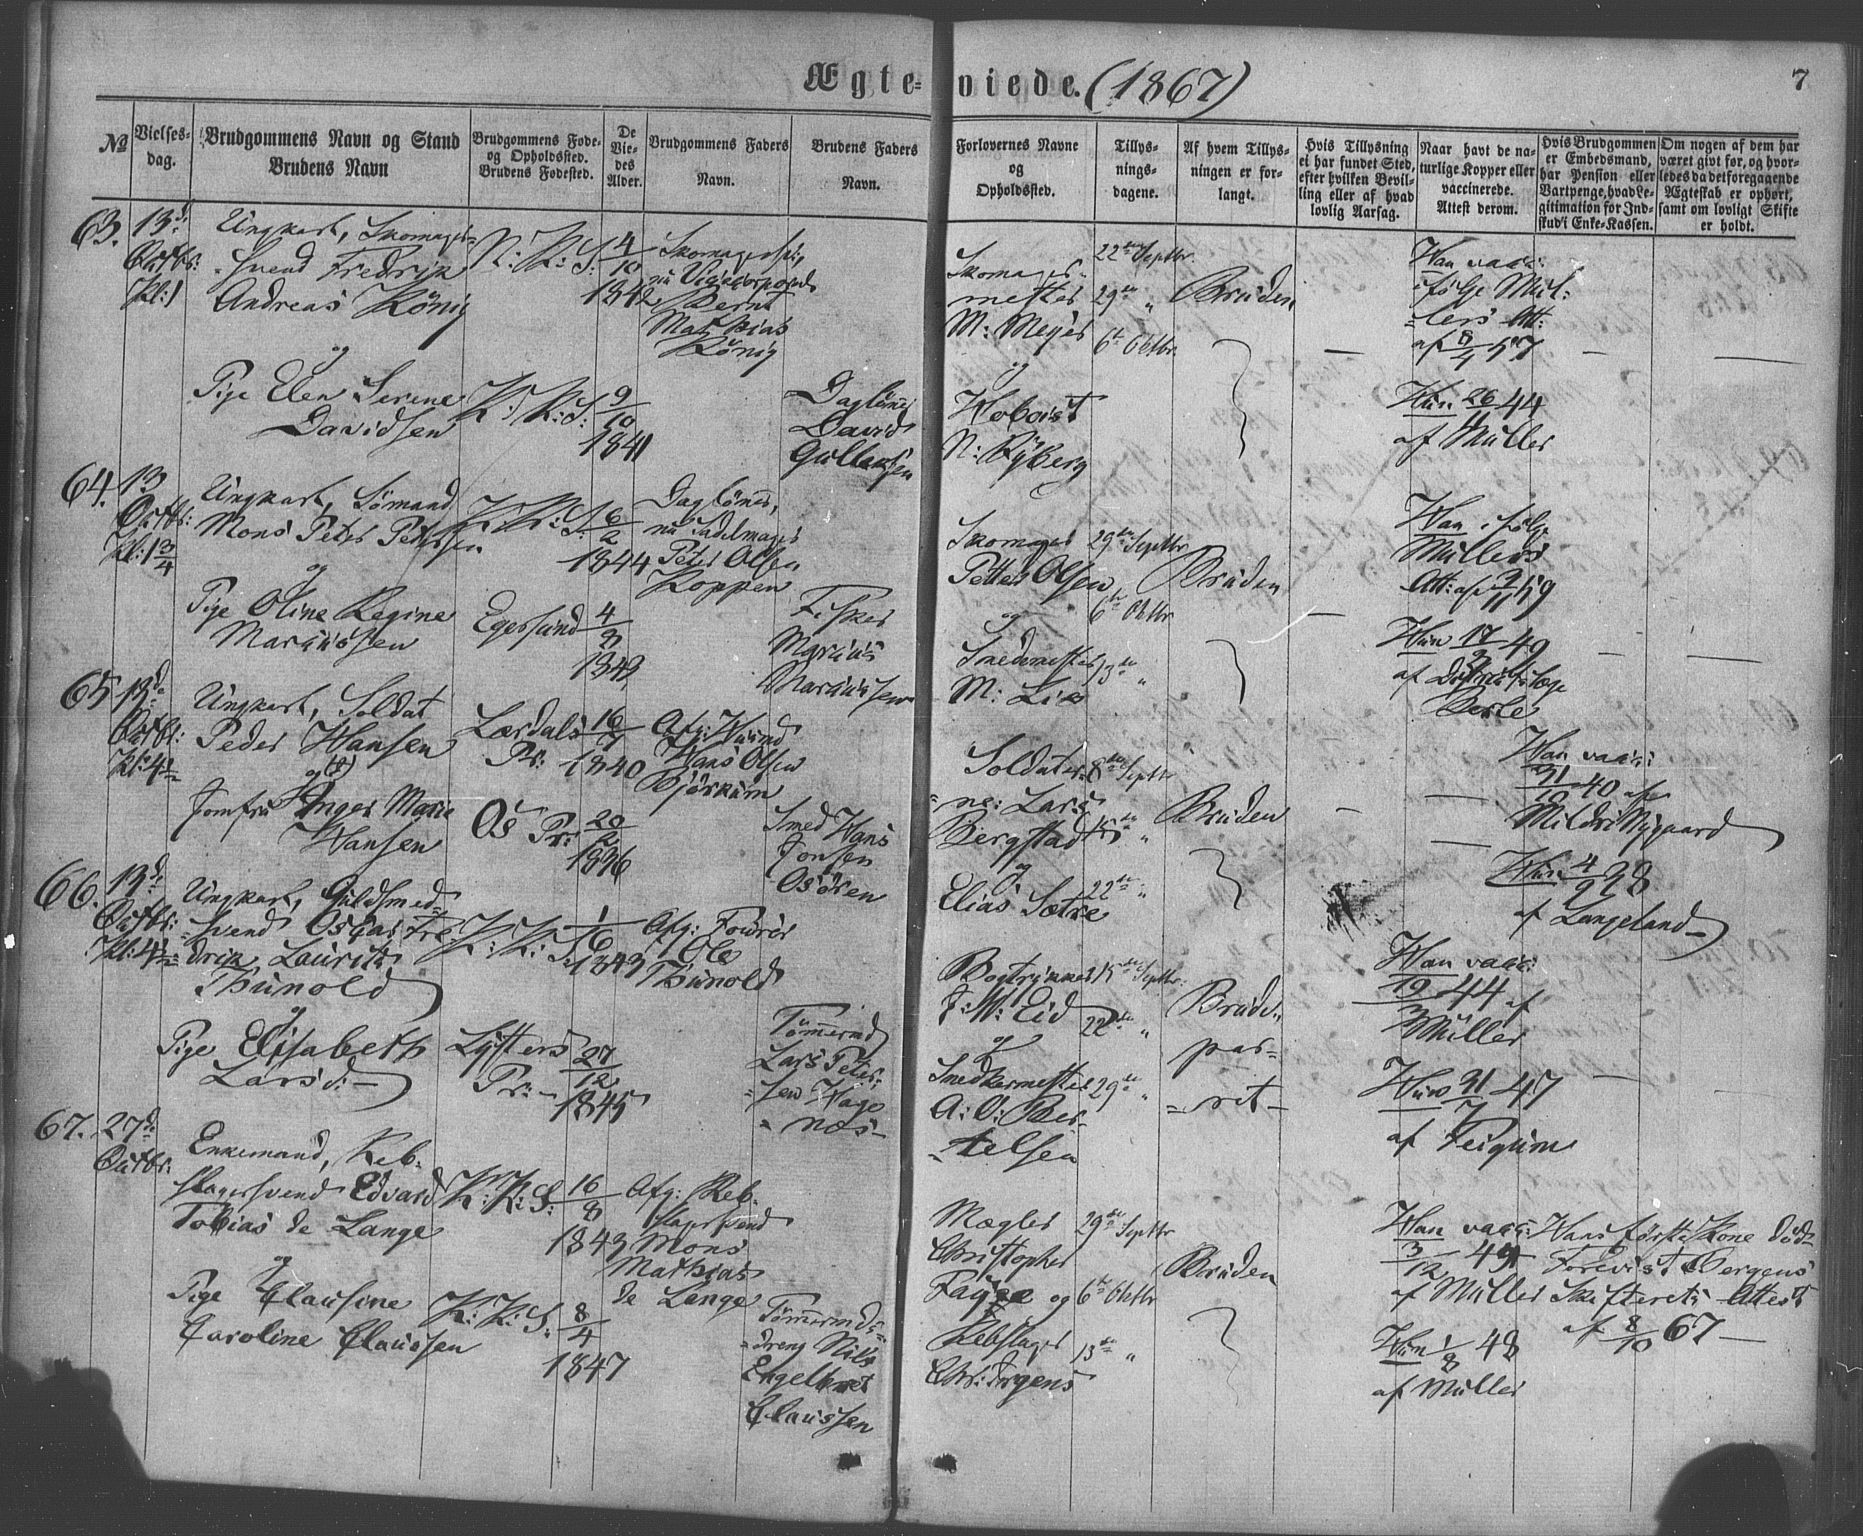 Ægte-viede. (1867)
7
No
Vielses-
dag.
Brudgommens Navn og Stand
Brudens Navn
BrudgommensFøde-
og Opholdssted.
Brudens Fødested.
De
Vie-
des
Alder.
Brudgommens Faders
Navn.
Brudens Faders
Navn.
Forlovernes Navne
og
Opholdssted.
Tillys-
nings-
dagene.
Af hvem Tillys-
ningen er for-
langt.
Hvis Tillysning
ei har fundet Sted,
efter hvilken Bevil-
ling eller af hvad
lovlig Aarsag.
Naar havt de na-
turlige Kopper eller
vaccinerede.
Attest derom.
Hvis Brudgommen
er Embedsmand,
har Pension eller
Vartpenge, hvad Le-
gitimation for Ind-
skud i Enke-Kassen.
Om nogen af dem har
været givt før, og hvor-
ledes da det foregaaende
Ægteskab er ophørt,
samt om lovligt Skifte
er holdt.
63.
13d
Octbr:
Kl: 1
Ungkarl, Skomager-
svend Fredrik
Andreas König
og
Pige Elen Serene
Davidsen
N: K: S:
K: K: S:
4
10
1842
9
10
1841
Skomagersv:,
nu Vign
Bernt
Mathias
König
Dagløn:
David
Gullaksen
Skomager-
mester
M: Meyer
og
Hoboist
N: Ryberg
22de Septbr
29de "
6te Oktbr.
Bruden
Han vacc:
ifølge Mül:
lers Att:
af 8/4 57
Hun 26/11 44
af Müller
64.
13
Octbr:
kl: 1 3/4
Ungkarl, Sømand
Mons Peter Petersen
og
Pige Oline Regine
Mariussen
K: K: S:
Egersund
6
2
1844
4
8
1843
Dagløner,
nu Sadelmager
Peter Olsen
Koppen
Fisker
Marius
Mariussen
Skomager
Petter Olsen
og
Smedemester
M: Lie
29de Septbr
6te Oktbr
13de "
Bruden
Han ifølge
Müllers
Att: af 9/11 59
Hun 17/9 49
af Distriktslæge
65.
13de
Octbr:
Kl: 4½
Ungkarl, Soldat
Peder Hansen
og
Jomfru Inger Marie
Hansen
Lærdals
Pr:
Os Pr:
16
7
1840
20
2
1826
Afg: Huusmd
Hans Olsen
Bjørkum
Smed Hans
Jonsen
Osøren
Soldater-
ne: Lars
Bergstad
og
Elias Sætre
8de Septbr
15de "
22de "
Bruden
Han vacc:
31/10 40 af
Mildri Nygaard
Hun 4/9 28
af Langeland
66.
13de
Octbr:
Kl: 4½
Ungkarl, Guldsmed-
svend Oscar Fre-
drik Lauritz
Thunold
og
Pige Elisabeth
Larsd:
K: K: S:
Lysters
Pr:
1
6
1843
27
12
1845
Afg: Fourer
Ole
Thunold
Tømmermd
Lars Peter-
sen Hage
næs
Bogtrykker
J: W: Eid
og
Snedkermester
A: O: Ber-
telsen
15de Septbr.
22de "
29de "
Brude-
par-
ret
Han vacc:
19/3 44 af
Müller
Hun 31/7 47
af Feigum
67.
27de
Octbr:
Enkemand, Reb-
slagersvend Edvard
Tobias de Lange
og
Pige Clausine
Caroline Claussen
K: K: S:
K: K: S:
16
8
1843
8
4
1847
Afg: Reb-
slagersvend
Mons
Mathias
de Lange
Tømmermds-
dreng Nils
Engelbret
Claussen
Mægler
Christopher
Faye og
Rebslager
Chr: Irgens
29de Septbr
6te Oktbr
13de "
Bruden
Han vacc:
3/12 45
af Müller
Hun 1/8 48
af Müller
Hans første Kone død
Forevist Bergens
Skifterets Attest
af 8/10 67